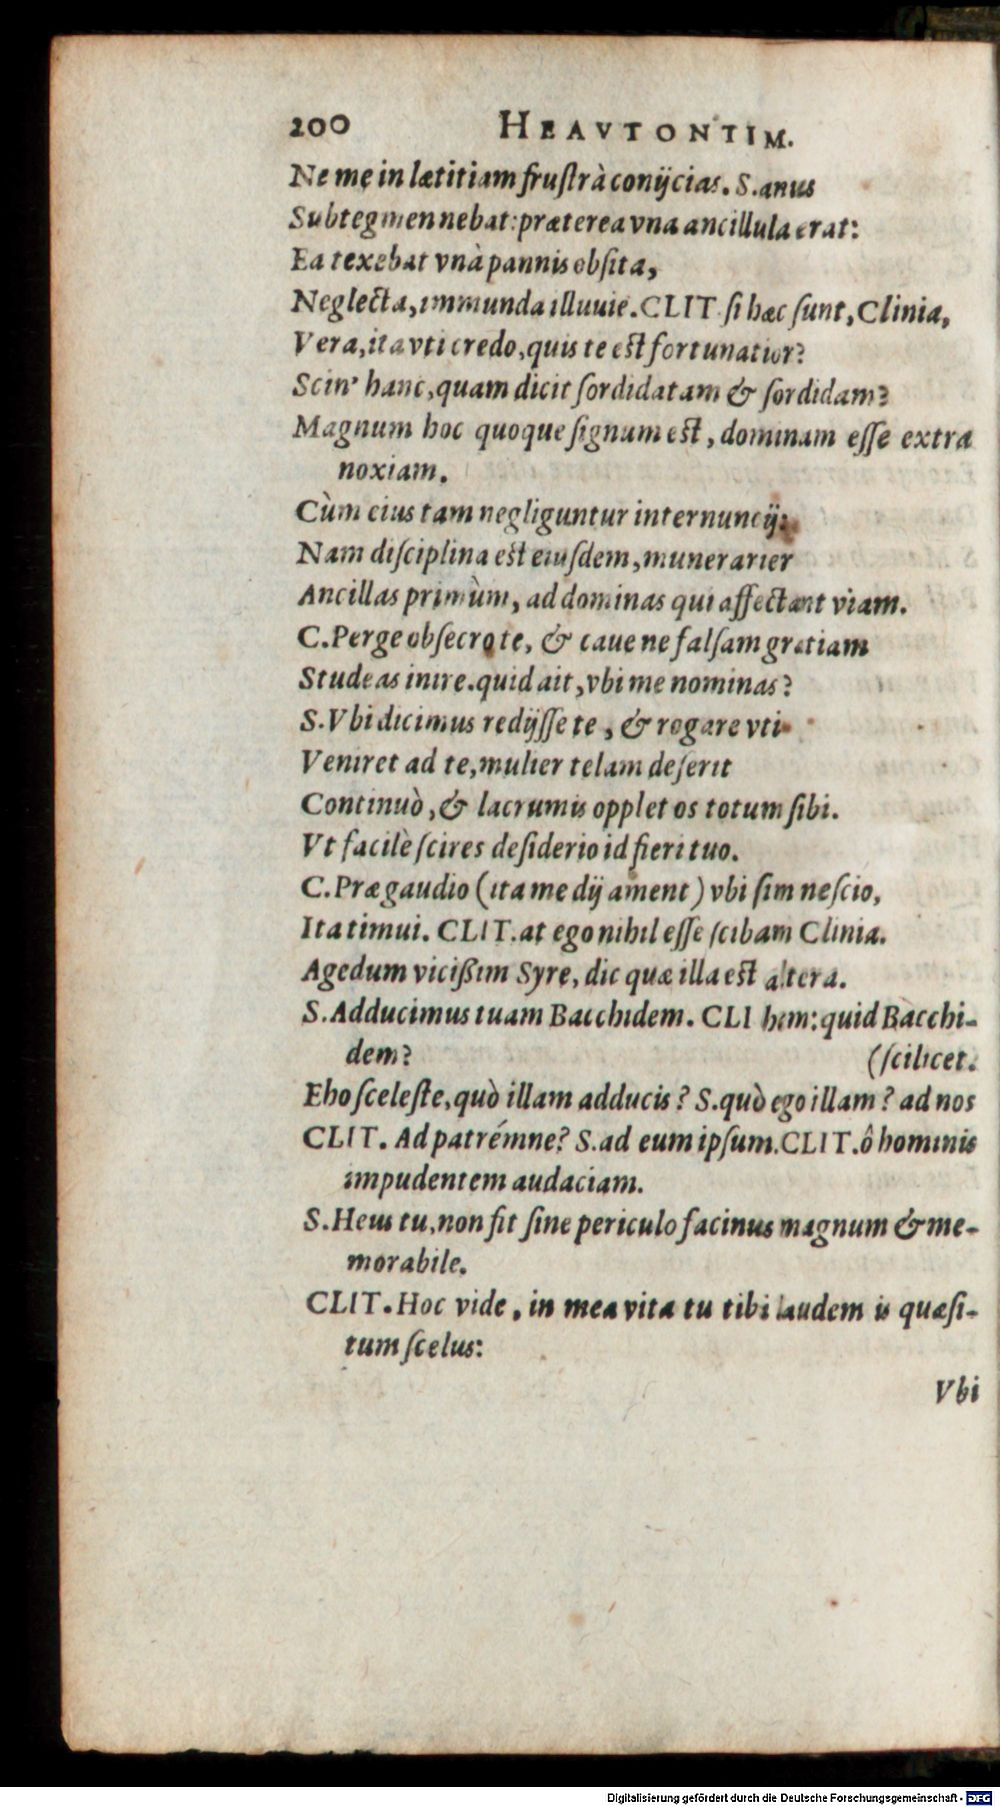 200 HEAVTONTIM.
Ne me in lætitiam frustrà conijcias. S. anus
Subtegmen nebat: præterea vna ancillula erat:
Ea texebat vnà pannis obsita,
Neglecta, immunda illuuie. CLIT. si hæc sunt, Clinia,
Vera, ita vti credo, quis te est fortunatior?
Scin' hanc, quam dicit sordidatam & sordidam?
Magnum hoc quoque signum est, dominam esse extra
noxiam.
Cùm eius tam negliguntur internuncij:
Nam disciplina est eiusdem, munerarier
Ancillas primùm, ad dominas qui affectant viam.
C. Perge obsecro te, & caue ne falsam gratiam
Studeas inire. quid ait, vbi me nominas?
S. Vbi dicimus redijsse te, & rogare vti
Veniret ad te, mulier telam deserit
Continuò, & lacrumis opplet os totum sibi.
Vt facilè scires desiderio id fieri tuo.
C. Præ gaudio (ita me dij ament) vbi sim nescio,
Ita timui. CLIT. at ego nihil esse scibam Clinia.
Agedum vicißim Syre, dic quæ illa est altera.
S. Adducimus tuam Bacchidem. CLI hem: quid Bacchi-
dem? (scilicet.
Eho sceleste, quò illam adducis? S. quò ego illam? ad nos
CLIT. Ad patrémne? S. ad eum ipsum. CLIT. ô hominis
impudentem audaciam.
S. Heus tu, non fit sine periculo facinus magnum & me-
morabile.
CLIT. Hoc vide, in mea vita tu tibi laudem is quæsi-
tum scelus:
Vbi
Digitalisierung gefördert durch die Deutsche Forschungsgemeinschaft - DFG